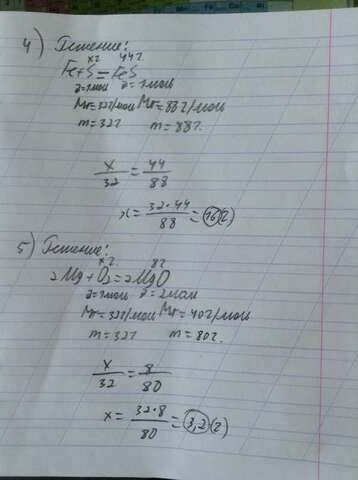 4) Решение:
x г 44 г
Fe+S=FeS
ν=1моль ν=1моль
Mr=32г/моль Mr=88г/моль
m=32г m=88г.
x/32=44/88
x=32·44/88=16(г)
5) Решение:
x г 8 г
2Mg+O2=2MgO
ν=1моль ν=2моль
Mr=32г/моль Mr=40г/моль
m=32г m=80г.
x/32=8/80
x=32·8/80=3,2(г)